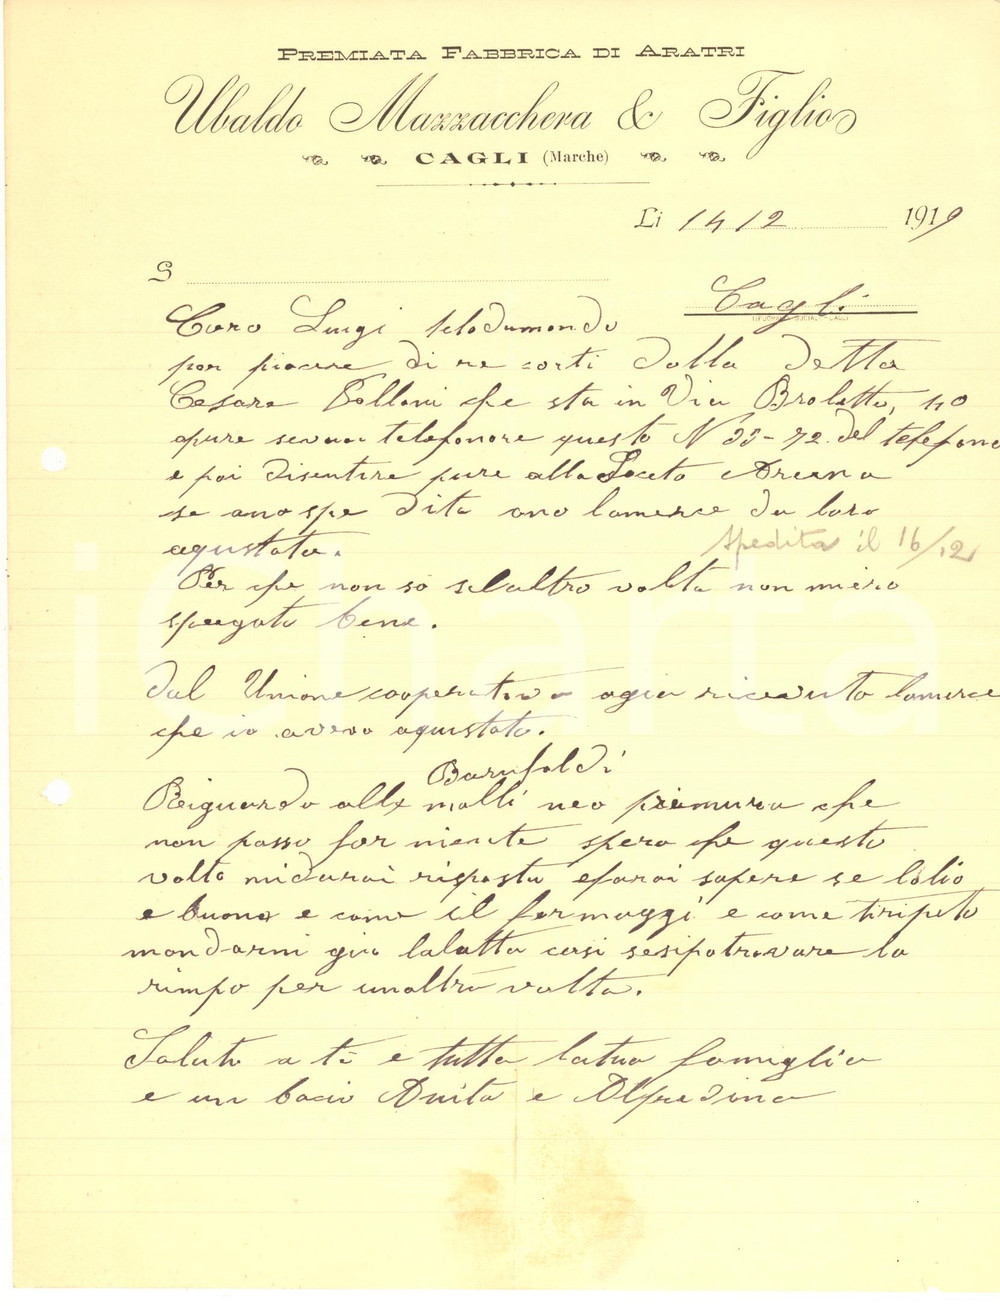 PREMIATA FABBRICA DI ARATRI
Ubaldo Mazzacchera & Figlio
CAGLI (Marche)
Li 14 12 1919
S
Cagli
Caro Luigi telodumando
per piacere di re corti dalla detta
Cesare Polloni che sta in Via Broletto, 40
opure senua telefonare questo N 33-72 del telefono
e poi disentire pure alla Soceta Areana
se ano spe dita ano lamerce da loro
aqustata.
Spedita il 16/12
Per che non so selaltro volta non miero
spiegato bene.
Dal Unione cooperativa ogia riceuto lamerce
che io avevo aquistato.
Barufaldi
Riguardo alle molli neo premura che
non posso far niente spero che questo
volta midarai risposta efarai sapere se lolio
e buono e come il formaggi e come tiripeto
mondarmi gia lalatta cosi sesipotravare la
rimpo per unaltra volta.
Saluto a te e tutta latua famiglia
e un bacio Anita e Alfredina
iCharta